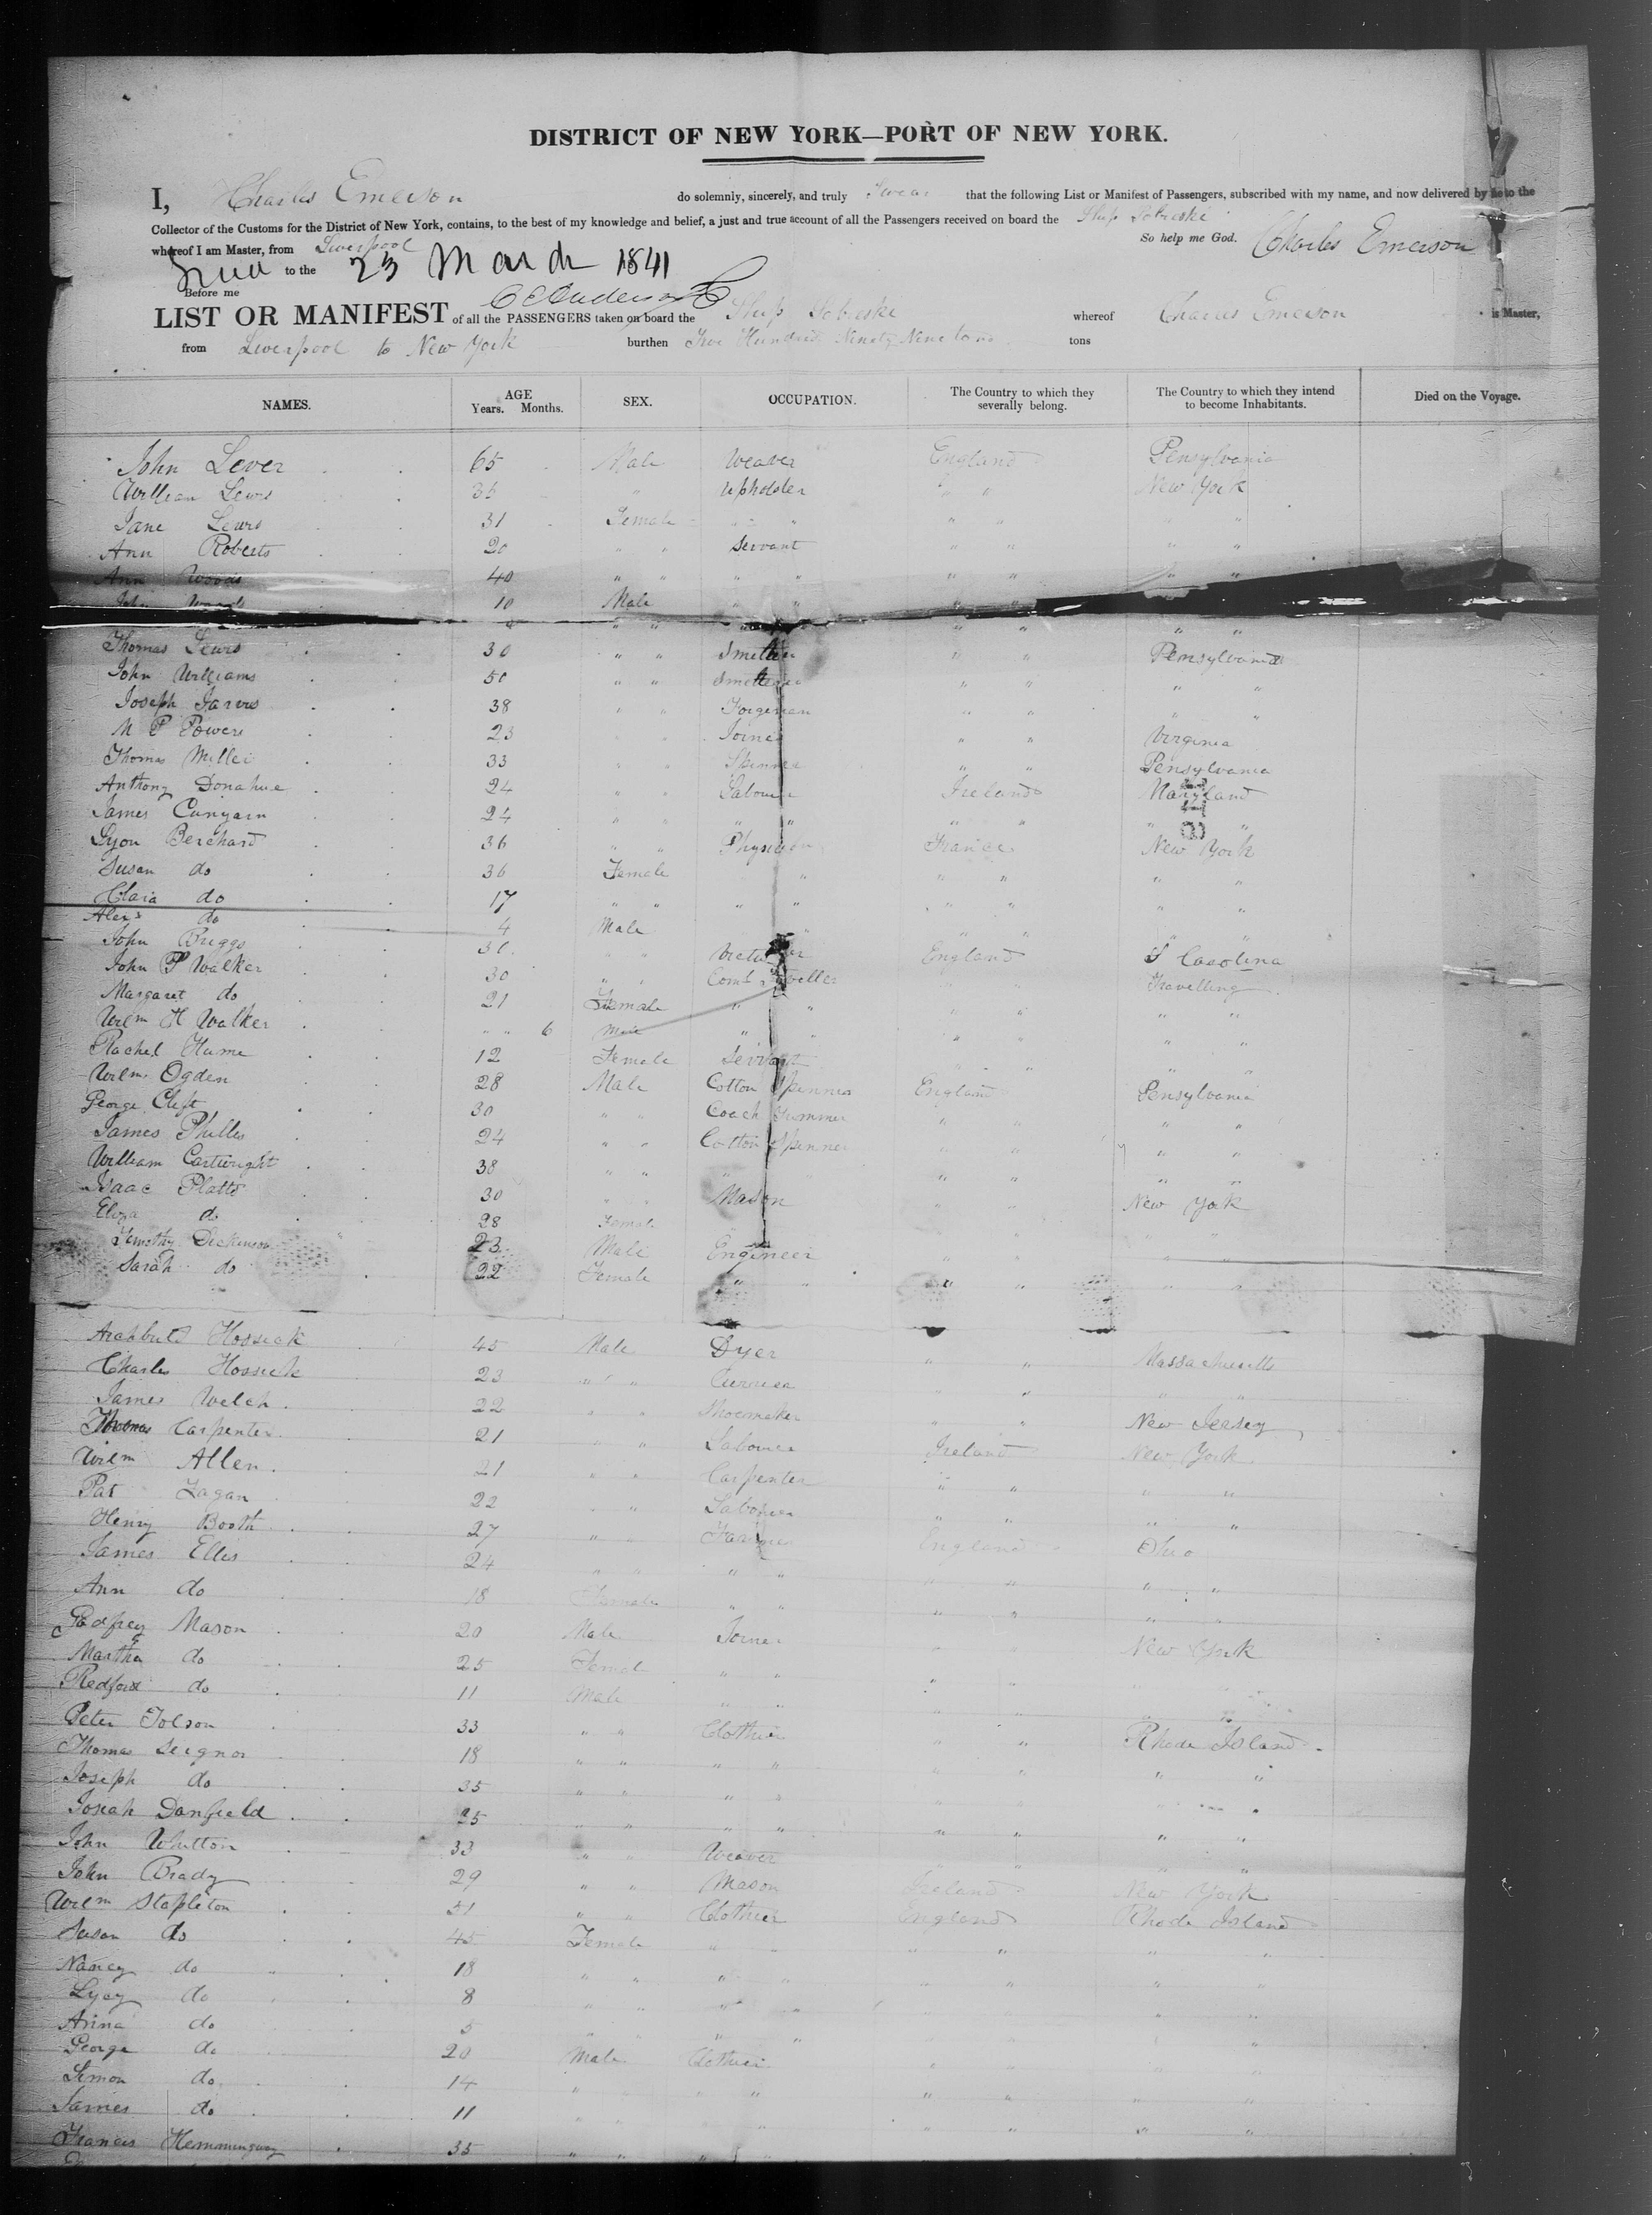 DISTRICT OF NEW YORK—PORT OF NEW YORK.
I, Charles Emerson do solemnly, sincerely, and truly Swear that the following List or Manifest of Passengers, subscribed with my name, and now delivered by me to the
Collector of the Customs for the District of New York, contains, to the best of my knowledge and belief, a just and true account of all the Passengers received on board the Ship Sobieski
whereof I am Master, from Liverpool So help me God. Charles Emerson
to the 23 March 1841
Before me
LIST OR MANIFEST of all the PASSENGERS taken on board the Ship Sobieski whereof Charles Emerson is Master,
from Liverpool to New York burthen Five Hundred Ninety Nine tons tons
NAMES. AGE Years. Months. SEX. OCCUPATION. The Country to which they severally belong. The Country to which they intend to become Inhabitants. Died on the Voyage.
John Lever 65 Male Weaver England Pensylvania
William Lewis 35 " Upholster " " New York
Jane Lewis 31 Female " " " " " "
Ann Roberts 20 " " Servant " " " "
Ann Woods 40 " " " " " " " "
John Woods 10 Male " " " "
" " " " " " " "
Thomas Lewis 30 " " Smelter " " Pensylvania
John Williams 50 " " Smelter " " " "
Joseph Jarvis 38 " " Forgeman " " " "
M P Powers 23 " " Joiner " " Virginia
Thomas Miller 33 " " Spinner " " Pensylvania
Anthony Donahue 24 " " Labourer Ireland Maryland
James Cunyarn 24 " " " " " " " "
Lyon Berchard 36 " " Physician France New York
Susan do 36 Female " " " " "
Clara do 17 " " " " " " " "
Alexr do 4 Male " " " " "
John Briggs 30 " " England S Carolina
John P Walker 30 " " Coml Traveller " " Travelling
Margaret do 21 Female " " " " " "
Wilm H Walker " " 6 Male " " " " " "
Rachel Hume 12 Female Servant " " " "
Wilm Ogden 28 Male Cotton Spinner England Pensylvania
George Clift 30 " " Coach Trimmer " " " "
James Phillis 24 " " Cotton Spinner " " " "
William Cartwright 38 " " " " " " "
Isaac Platts 30 " " Mason " " New York
Eliza do 28 Female " " " "
Timothy Dickinson 23 Male Engineer " " " "
Sarah do 22 Female " " " " " "
Archbuld Hossick 45 Male Dyer " " Massachusetts
Charles Hossick 23 " " Currier " " " "
James Welch 22 " " Shoemaker " " New Jersey
Thomas Carpenter 21 " " Labourer Ireland New York
Wilm Allen 21 " " Carpenter " " " "
Pat Fagan 22 " " Labourer " " " "
Henry Booth 27 " " Farmer England Ohio
James Ellis 24 " " " " " " " "
Ann do 18 Female " " " " " "
Godfrey Mason 20 Male Joiner " " New York
Martha do 25 Female " " " " " "
Redford do 11 Male " " " " " "
Peter Tolson 33 " " Clothier " " Rhode Island
Thomas Seignor 18 " " " " " " " "
Joseph do 35 " " " " " " " "
Josiah Danfield 25 " " " " " " " "
John Whitton 33 " " Weaver " " " "
John Brady 29 " " Mason Ireland New York
Wilm Stapleton 51 " " Clothier England Rhode Island
Susan do 45 Female " " " " " "
Nancy do 18 " " " " " " " "
Lyey do 8 " " " " " " " "
Anna do 5 " " " " " " " "
George do 20 Male Clothier " " " "
Simon do 14 " " " " " " " "
James do 11 " " " " " " "
Francis Hemmingway 35 " " " "